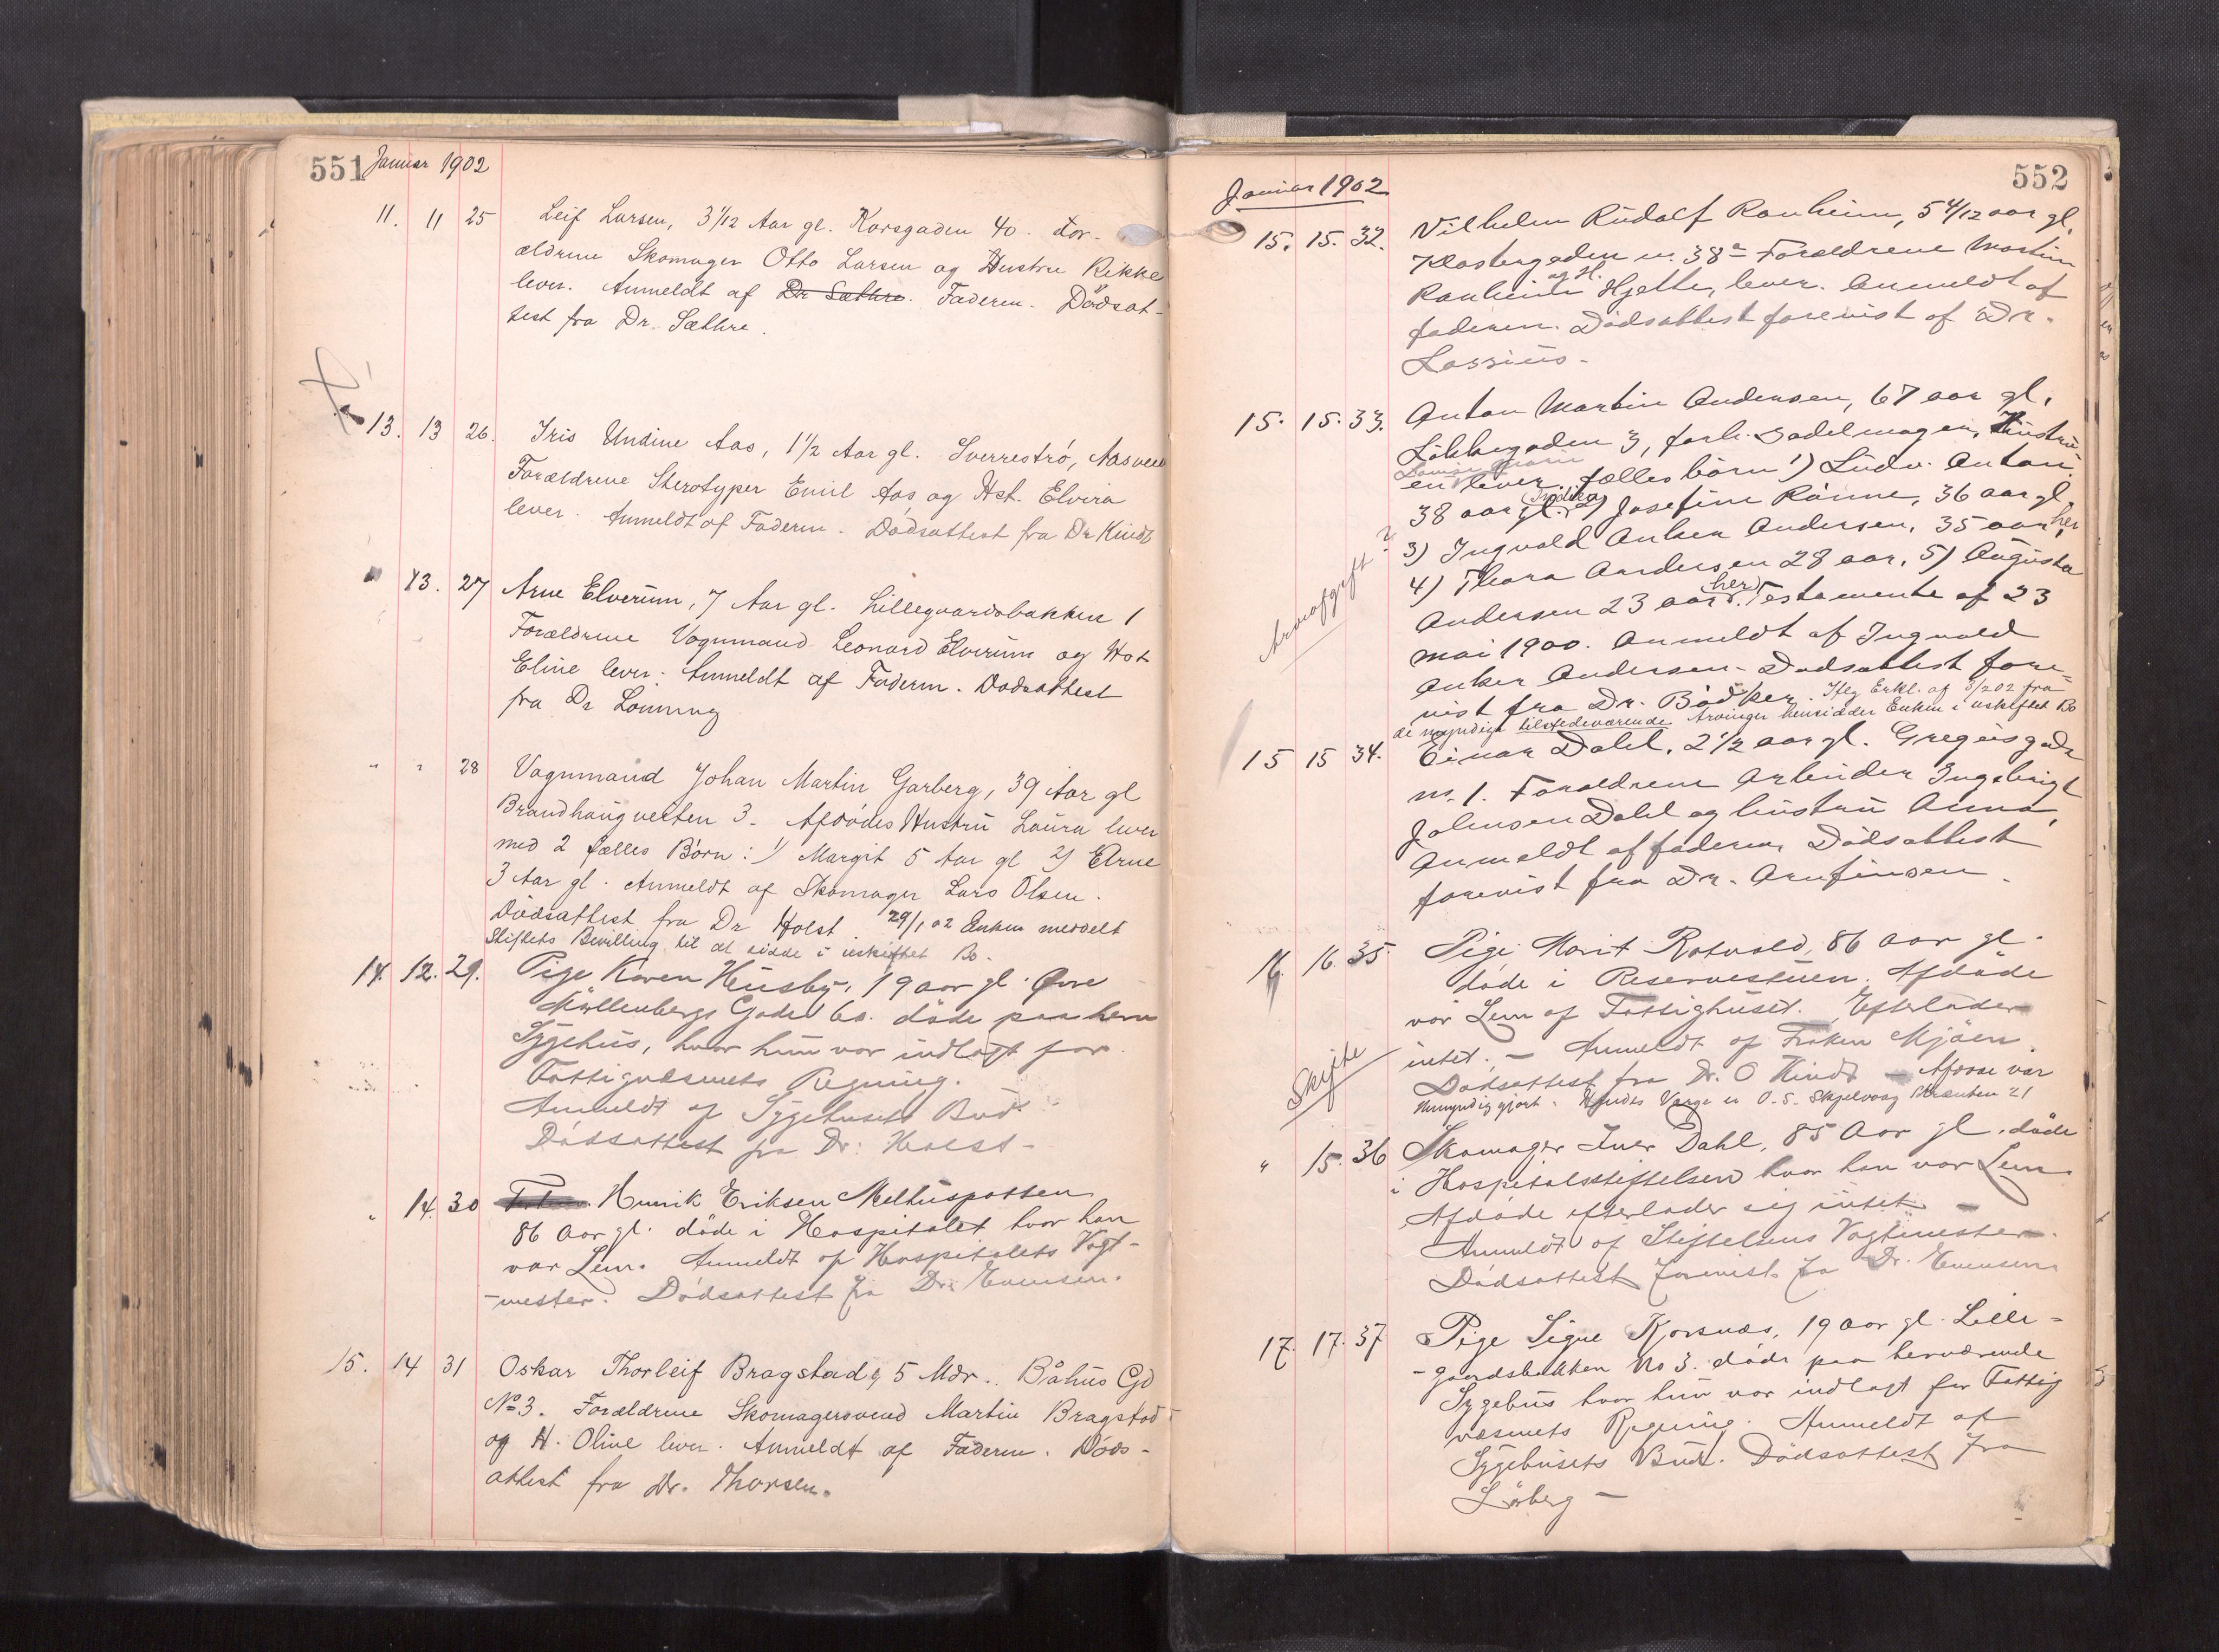 551 Januar 1902
11. 11 25 Leif Larsen, 3 1/12 Aar gl. Korsgaden 40. For-
ældrene Skomager Otto Larsen og Hustru Rikke
lever. Anmeldt af Dr Sæthre. Faderen. Dödsat-
test fra Dr. Sæthre.
13. 13 26. Iris Undine Aas, 1 1/2 Aar gl. Sverrestrø, Aasveien
Forældrene Sterotyper Emil Aas og Hst. Elvira
lever. Anmeldt af Faderen. Dödsattest fra Dr Kindt
" 13. 27 Arne Elverum, 7 Aar gl. Lillegaardsbakken 1
Forældrene Vognmand Leonard Elverum og Hst
Eline lever. Anmeldt af Faderen. Dødsattest
fra Dr Lönning
" " 28 Vognmand Johan Martin Garberg, 39 Aar gl
Brandhaugveiten 3. Afdödes Hustru Laura lever
med 2 fælles Börn: 1) Margit 5 Aar gl 2) Arne
3 Aar gl. Anmeldt af Skomager Lars Olsen.
Dödsattest fra Dr Holst. 29/1 02 Enken meddelt
Stiftets Bevilling til at sidde i uskiftet Bo.
14. 12. 29. Pige Karen Husby, 19 aar gl. Øvre
Möllenbergs Gade 60. döde paa herv
Sygehus, hvor hun var indlagt for
Fattigvæsenets Regning.
Anmeldt af Sygehusets Bud.
Dödsattest fra Dr. Holst-
" 14. 30 Henrik Eriksen Melhuspatten
86 Aar gl. döde i Hospitalet hvor han
var Lem. Anmeldt af Hospitalets Vagt-
-mester. Dödsattest fra Dr. Evensen.
15. 14 31 Oskar Thorleif Bragstad, 5 Mdr.. Båhus Gd
No 3. Forældrene Skomagersvend Martin Bragstad
og H. Oline lever. Anmeldt af Faderen. Döds-
attest fra Dr. Thorsen.
552
Januar 1902
15. 15. 32. Vilhelm Rudolf Ranheim, 5 4/12 aar gl.
Klostergaden nr. 38a Forældrene Martin
Ranheim og H. Hjette, lever. Anmeldt af
faderen. Dödsattest forevist af Dr.
Lossius-
15. 15. 33. Anton Martin Andersen, 67 aar gl.
Lökkegaden 3, forh. Sadelmager, Hustru
en lever, fælles börn 1) Ludv. Anton
38 aar gl. 2) Josefine Rönne, 36 aar gl.
3) Ingvald Anker Andersen, 35 aar her,
4) Thora Andersen 28 aar, 5) Augusta
Andersen 23 aar her. Testamente af 23
mai 1900. Anmeldt af Ingvald
Anker Andersen - Dødsattest fore-
vist fra Dr. Bödtker. Iflg Erkl. af 8/2 02 fra
de myndige tilstedeværende Arvinger hensidder Enken i uskiftet Bo
Arveafgift ?
15 15 34. Einar Dahl, 2 1/2 aar gl. Gregusgade
nr. 1. Forældrene Arbeider Ingebrigt
Johnsen Dahl og hustru Anna,
Anmeldt af faderen, Dödsattest
forevist fra Dr. Arnfinsen.
16. 16. 35. Pige Marit Rotvold, 86 aar gl.
döde i Reservestuen. Afdöde
var Lem af Fattighuset. Efterlader
intet. - Anmeldt af Fröken Mjöen.
Dödsattest fra Dr. O Kindt - Afdøde var
Umyndiggjort. Hendes Værge er O. S. Skjelvaag
Skifte
" 15. 36 Skomager Iver Dahl, 85 Aar gl. döde
i Hospitalsstiftelsen hvor han var Lem.
Afdöde efterlader sig intet -
Anmeldt af Stiftelsens Vagtmester.
Dödsattest forevist fra Dr. Evensen.
17. 17. 37 Pige Signe Korsnæs, 19 aar gl. Lille-
-gaardsbakken No 3. döde paa herværende
Sygehus hvor hun var indlagt for Fattig
væsenets Regning. Anmeldt af
Sygehusets Bud. Dödsattest fra
Lörberg -